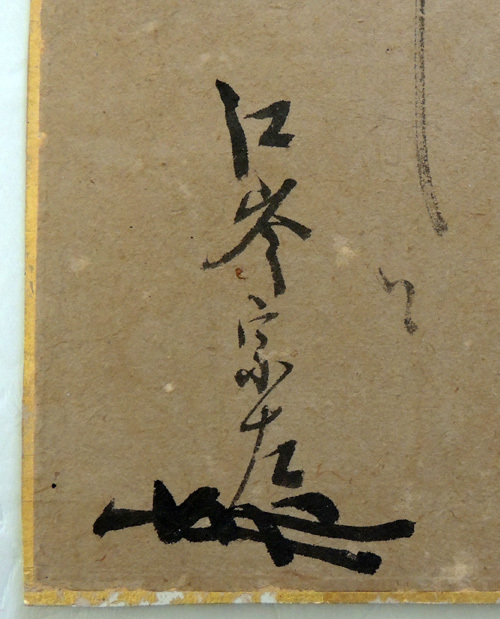 江岑宗左